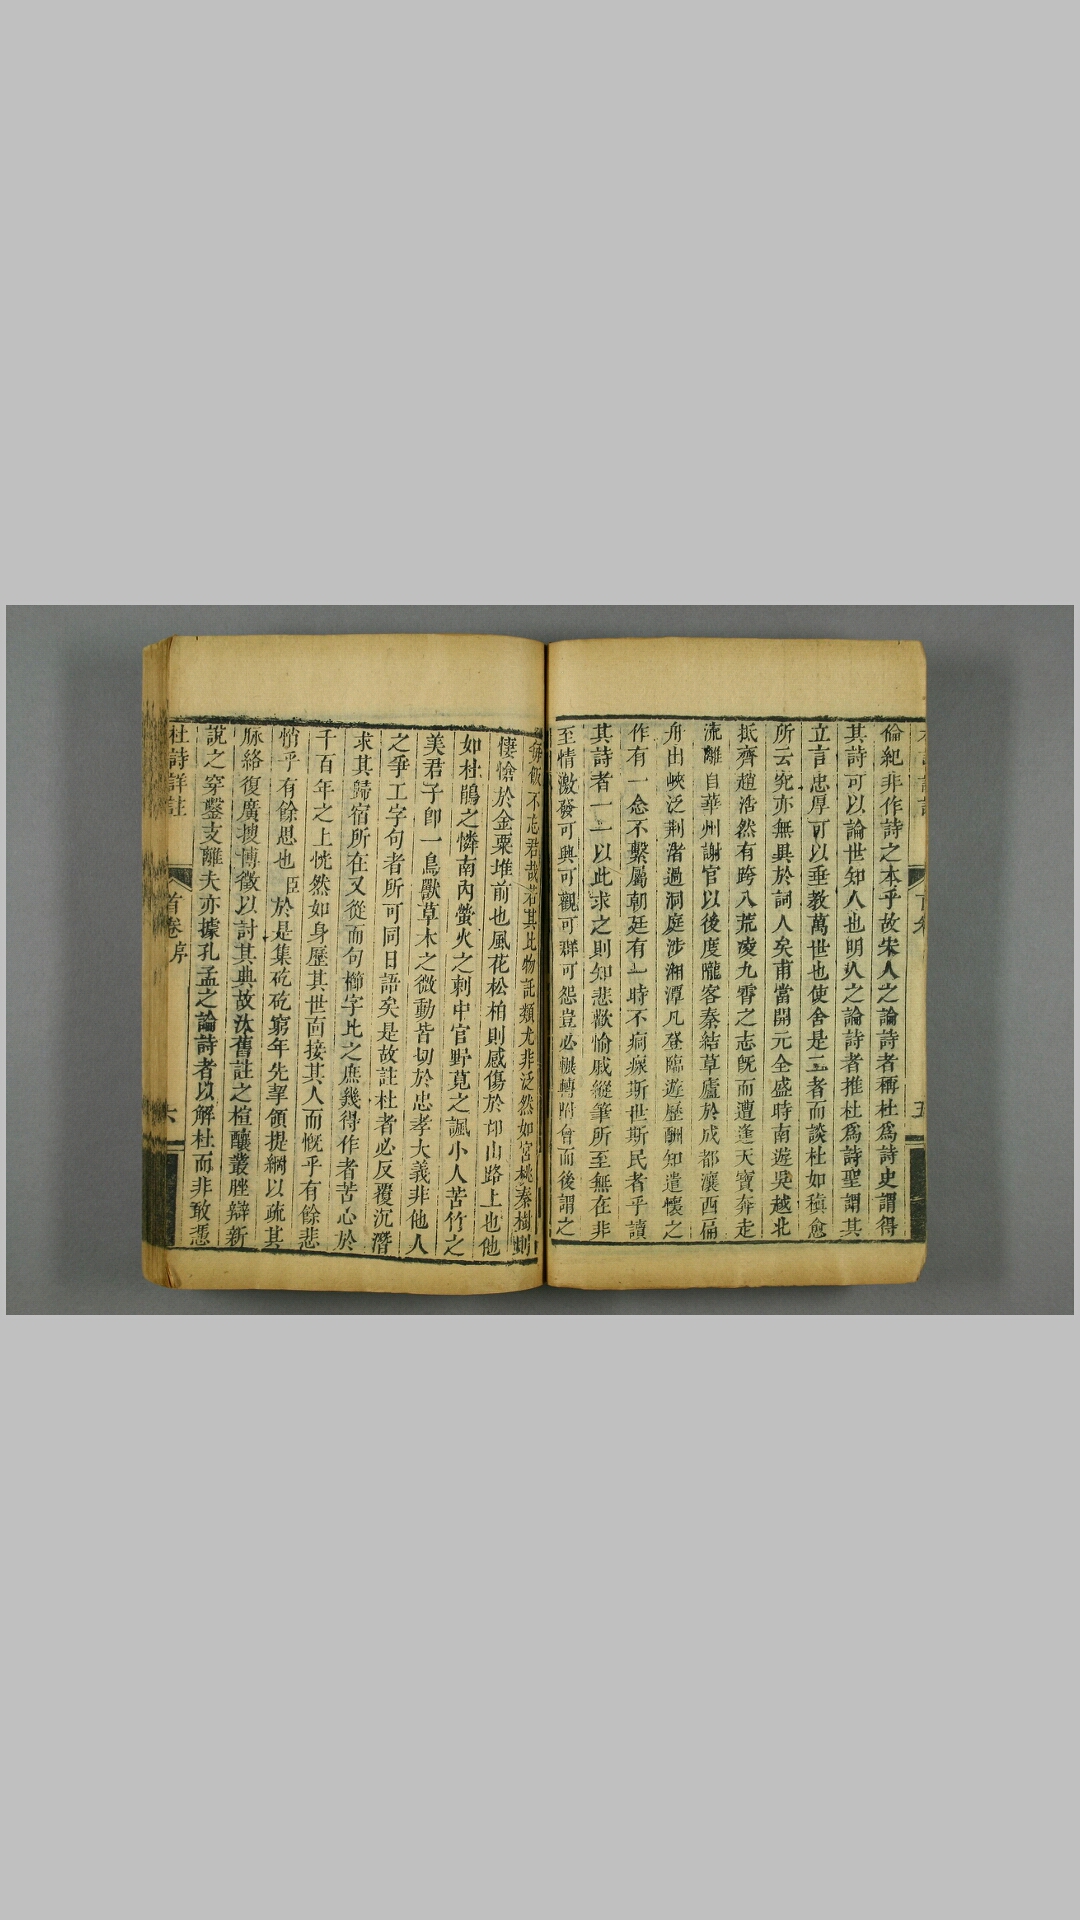 倫紀非作詩之本乎故宋人之論詩者稱杜爲詩史謂得
其詩可以論世知人也明人之論詩者推杜爲詩聖謂其
立言忠厚可以垂教萬世也使舍是二者而談杜如稹愈
所云究亦無異於詞人矣甫當開元全盛時南遊吳越北
抵齊趙浩然有跨八荒凌九霄之志旣而遭逢天寶奔走
流離自華州謝官以後度隴客秦結草廬於成都瀼西扁
舟出峽泛荆渚過洞庭涉湘潭凡登臨遊歷酬知遣懷之
作有一念不繫屬朝廷有一時不痌瘝斯世斯民者乎讀
其詩者一一以此求之則知悲歡愉戚縱筆所至無在非
至情激發可興可觀可群可怨豈必輾轉附會而後謂之
每飯不忘君哉若其比物託類尤非泛然如宮桃秦樹則
悽愴於金粟堆前也風花松柏則感傷於邙山路上也他
如杜鵑之憐南內螢火之刺中官野莧之諷小人苦竹之
美君子卽一鳥獸草木之微動皆切於忠孝大義非他人
之爭工字句者所可同日語矣是故註杜者必反覆沉潛
求其歸宿所在又從而句櫛字比之庶幾得作者苦心於
千百年之上恍然如身歷其世面接其人而慨乎有餘悲
悄乎有餘思也臣於是集矻矻窮年先挈領提綱以疏其
脈絡復廣搜博徵以討其典故汰舊註之楦釀叢脞辯新
說之穿鑿支離夫亦據孔孟之論詩者以解杜而非敢憑
杜詩詳註 首卷 序 六